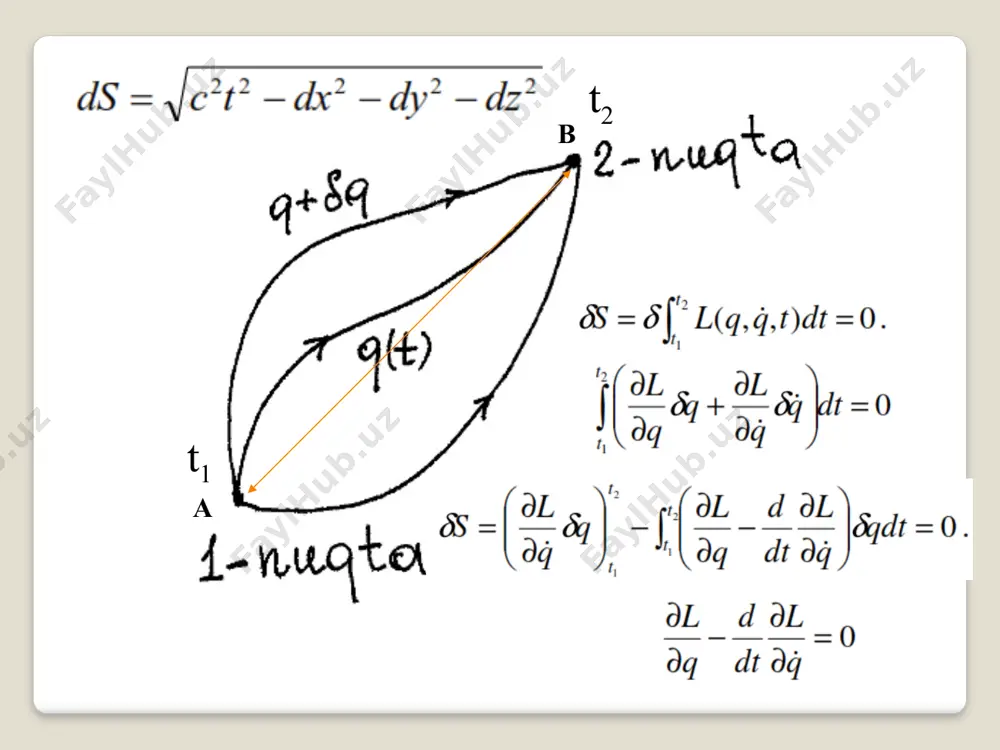 dS = √(c²t² − dx² − dy² − dz²)
t₂
B
2-nuqta
q+δq
q(t)
t₁
A
1-nuqta
δS = δ∫_{t₁}^{t₂} L(q, q̇, t)dt = 0.
∫_{t₁}^{t₂} (∂L/∂q δq + ∂L/∂q̇ δq̇)dt = 0
δS = (∂L/∂q̇ δq)_{t₁}^{t₂} − ∫_{t₁}^{t₂} (∂L/∂q − d/dt ∂L/∂q̇) δqdt = 0.
∂L/∂q − d/dt ∂L/∂q̇ = 0
FaylHub.uz
FaylHub.uz
FaylHub.uz
b.uz
FaylHub.uz
FaylHub.uz